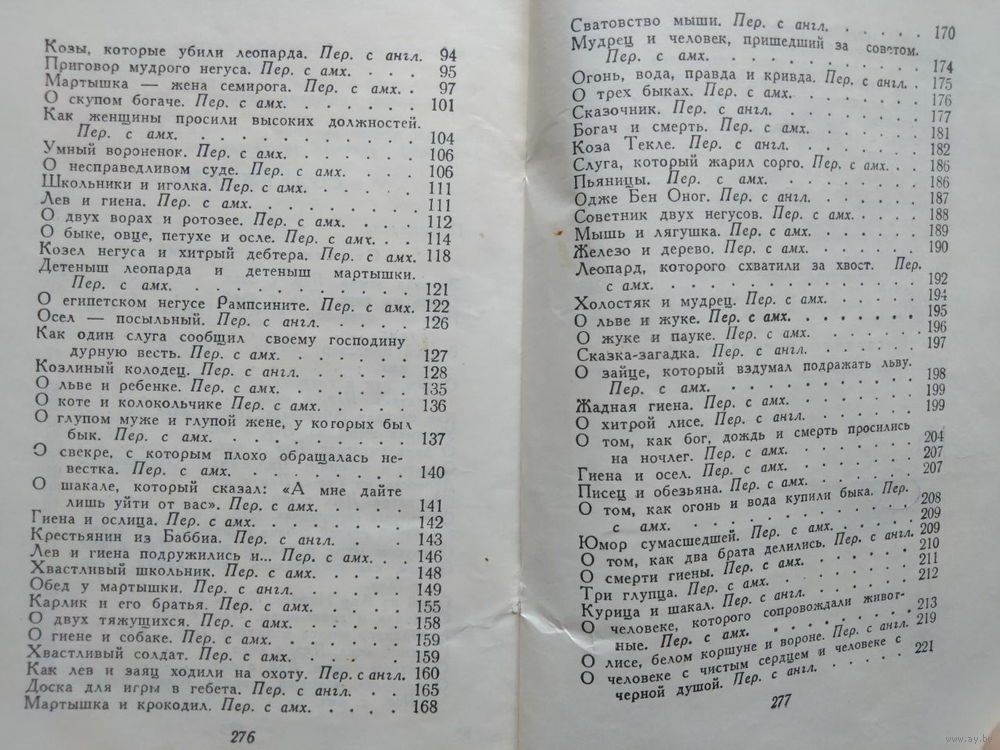 Козы, которые убили леопарда. Пер. с англ. 94
Приговор мудрого негуса. Пер. с амх. . . . 95
Мартышка — жена семирога. Пер. с амх. . 97
О скупом богаче. Пер. с амх. . . . . . . 101
Как женщины просили высоких должностей.
Пер. с амх. . . . . . . . . . . 104
Умный вороненок. Пер. с амх. . . . . . . 106
О несправедливом суде. Пер. с амх. . . . . 106
Школьники и иголка. Пер. с амх. . . . . . 111
Лев и гиена. Пер. с амх. . . . . . . . . 111
О двух ворах и ротозее. Пер. с амх. . . . . 112
О быке, овце, петухе и осле. Пер. с амх. . . 114
Козел негуса и хитрый дебтера. Пер. с амх. 118
Детеныш леопарда и детеныш мартышки.
Пер. с амх. . . . . . . . . . . . 121
О египетском негусе Рампсините. Пер. с амх. 122
Осел — посыльный. Пер. с англ. . . . . . 126
Как один слуга сообщил своему господину
дурную весть. Пер. с амх. . . . . . . 127
Козлиный колодец. Пер. с англ. . . . . . 128
О льве и ребенке. Пер. с амх. . . . . . . 135
О коте и колокольчике Пер. с амх. . . . . 136
О глупом муже и глупой жене, у которых был
бык. Пер. с амх. . . . . . . . . . 137
О свекре, с которым плохо обращалась не-
вестка. Пер. с амх. . . . . . . . . 140
О шакале, который сказал: «А мне дайте
лишь уйти от вас». Пер. с амх. . . . . 141
Гиена и ослица. Пер. с амх. . . . . . . . 142
Крестьянин из Баббиа. Пер. с англ. . . . 143
Лев и гиена подружились и... Пер. с амх. . . 146
Хвастливый школьник. Пер. с амх. . . . . 148
Обед у мартышки. Пер. с англ. . . . . . 149
Карлик и его братья. Пер. с амх. . . . . . 155
О двух тяжущихся. Пер. с амх. . . . . . 158
О гиене и собаке. Пер. с амх. . . . . . . 159
Хвастливый солдат. Пер. с амх. . . . . . 159
Как лев и заяц ходили на охоту. Пер. с англ. 160
Доска для игры в гебета. Пер. с англ. . . . 165
Мартышка и крокодил. Пер. с амх. . . . . 168
276
Сватовство мыши. Пер. с англ. . . . . . . 170
Мудрец и человек, пришедший за советом.
Пер. с амх. . . . . . . . . . . . 174
Огонь, вода, правда и кривда. Пер. с англ. . 175
О трех быках. Пер. с амх. . . . . . . . 176
Сказочник. Пер. с англ. . . . . . . . . 177
Богач и смерть. Пер. с амх. . . . . . . . 181
Коза Текле. Пер. с англ. . . . . . . . . 182
Слуга, который жарил сорго. Пер. с амх. . . 186
Пьяницы. Пер. с амх. . . . . . . . . . 186
Одже Бен Оног. Пер. с англ. . . . . . . 187
Советник двух негусов. Пер. с амх. . . . . 188
Мышь и лягушка. Пер. с амх. . . . . . . 189
Железо и дерево. Пер. с амх. . . . . . . 190
Леопард, которого схватили за хвост. Пер.
с амх. . . . . . . . . . . . . . 192
Холостяк и мудрец. Пер. с амх. . . . . . 194
О льве и жуке. Пер. с амх. . . . . . . . 195
О жуке и пауке. Пер. с амх. . . . . . . . 196
Сказка-загадка. Пер. с англ. . . . . . . . 197
О зайце, который вздумал подражать льву.
Пер. с амх. . . . . . . . . . . . 198
Жадная гиена. Пер. с амх. . . . . . . . 199
О хитрой лисе. Пер. с англ. . . . . . . . 199
О том, как бог, дождь и смерть просились
на ночлег. Пер. с амх. . . . . . . . 204
Гиена и осел. Пер. с амх. . . . . . . . . 207
Писец и обезьяна. Пер. с амх. . . . . . . 207
О том, как огонь и вода купили быка. Пер.
с амх. . . . . . . . . . . . . . 208
Юмор сумасшедшей. Пер. с амх. . . . . . 209
О том, как два брата делились. Пер. с англ. 209
О смерти гиены. Пер. с амх. . . . . . . . 210
Три глупца. Пер. с амх. . . . . . . . . 211
Курица и шакал. Пер. с англ. . . . . . . 212
О человеке, которого сопровождали живот-
ные. Пер. с амх. . . . . . . . . . 213
О лисе, белом коршуне и вороне. Пер. с англ. 219
О человеке с чистым сердцем и человеке с
черной душой. Пер. с англ. . . . . . . 221
277
www.ay.by